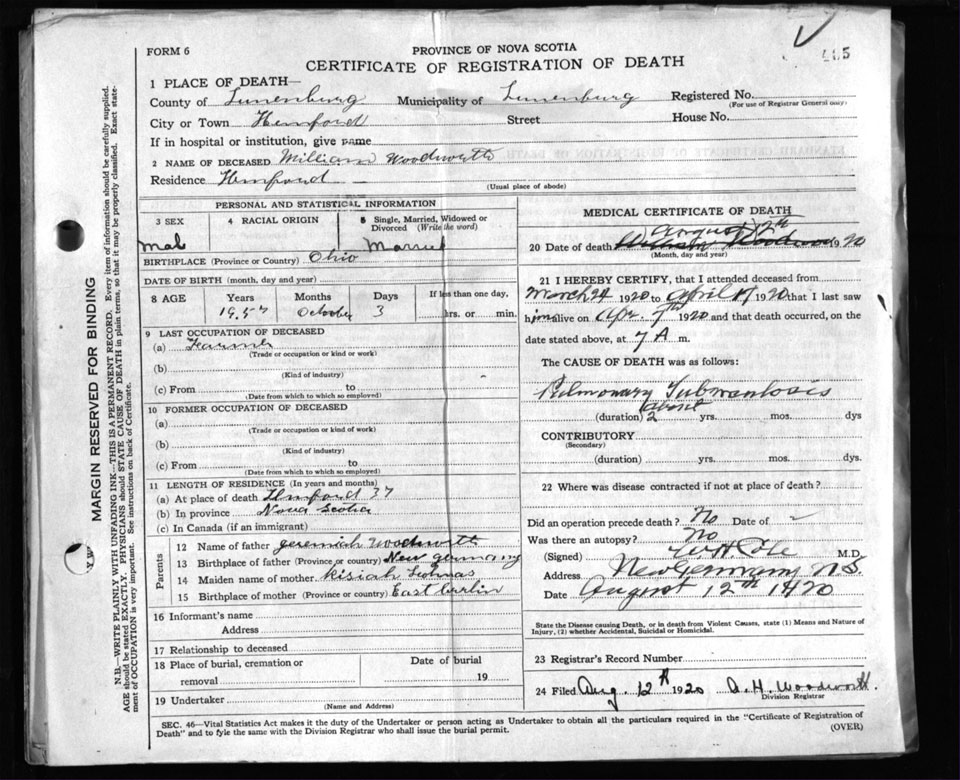 FORM 6
PROVINCE OF NOVA SCOTIA
CERTIFICATE OF REGISTRATION OF DEATH
1 PLACE OF DEATH—
County of Lunenburg Municipality of Lunenburg Registered No.
(For use of Registrar General only)
City or Town Hemford Street House No.
If in hospital or institution, give name
2 NAME OF DECEASED William Woodworth
Residence Hemford
(Usual place of abode)
PERSONAL AND STATISTICAL INFORMATION
3 SEX 4 RACIAL ORIGIN 5 Single, Married, Widowed or Divorced (Write the word)
Mal Married
BIRTHPLACE (Province or Country) Ohio
DATE OF BIRTH (month, day and year)
8 AGE Years Months Days If less than one day,
October 3 hrs. or min.
9 LAST OCCUPATION OF DECEASED
(a) Farmer
(Trade or occupation or kind or work)
(b)
(Kind of industry)
(c) From to
(Date from which to which so employed)
10 FORMER OCCUPATION OF DECEASED
(a)
(Trade or occupation or kind of work)
(b)
(Kind of industry)
(c) From to
(Date from which to which so employed)
11 LENGTH OF RESIDENCE (In years and months)
(a) At place of death Hemford 37
(b) In province Nova Scotia
(c) In Canada (if an immigrant)
Parents
12 Name of father Jeremiah Woodworth
13 Birthplace of father (Province or country) New germany
14 Maiden name of mother Kisiah
15 Birthplace of mother (Province or country) East berlin
16 Informant's name
Address
17 Relationship to deceased
18 Place of burial, cremation or removal Date of burial 19
19 Undertaker
(Name and Address)
MEDICAL CERTIFICATE OF DEATH
August 12th
20 Date of death 1920
(Month, day and year)
21 I HEREBY CERTIFY, that I attended deceased from
March 24 1920 to April 17 1920 that I last saw
him alive on Apr. 7th 1920 and that death occurred, on the
date stated above, at 7 A m.
The CAUSE OF DEATH was as follows:
Pulmonary Tuberculosis
about
(duration) 2 yrs. mos. dys
CONTRIBUTORY
(Secondary)
(duration) yrs. mos. dys.
22 Where was disease contracted if not at place of death?
Did an operation precede death? No Date of
Was there an autopsy? No
(Signed) W H Cole M.D.
Address New Germany N.S.
Date August 12th 1920
State the Disease causing Death, or in death from Violent Causes, state (1) Means and Nature of Injury, (2) whether Accidental, Suicidal or Homicidal.
23 Registrar's Record Number
24 Filed Aug. 12th 1920 A. H. Woodworth.
Division Registrar
SEC. 46—Vital Statistics Act makes it the duty of the Undertaker or person acting as Undertaker to obtain all the particulars required in the "Certificate of Registration of
Death" and to fyle the same with the Division Registrar who shall issue the burial permit.
(OVER)
MARGIN RESERVED FOR BINDING
N.B.—WRITE PLAINLY WITH UNFADING INK—THIS IS A PERMANENT RECORD. Every item of information should be carefully supplied.
AGE should be stated EXACTLY. PHYSICIANS should STATE CAUSE OF DEATH in plain terms, so that it may be properly classified. Exact statement of OCCUPATION is very important. See instructions on back of Certificate.